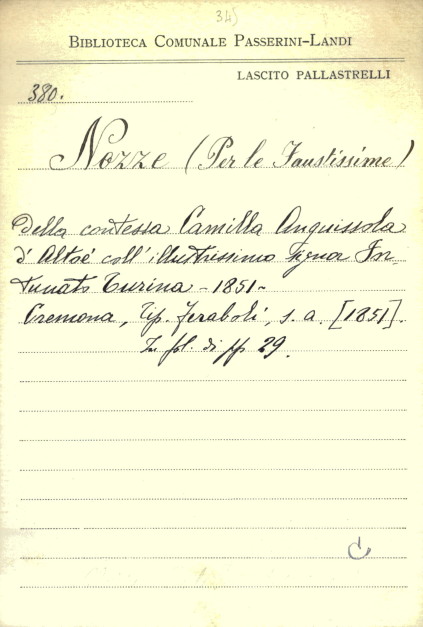 34)
BIBLIOTECA COMUNALE PASSERINI-LANDI
LASCITO PALLASTRELLI
380.
Nozze (Per le Faustissime)
Della contessa Camilla Anguissola
d'Altoè coll'illustrissimo signor For-
tunato Turina - 1851 -
Cremona, Tip. Feraboli, s. a. [1851].
In fol. di pp 29.